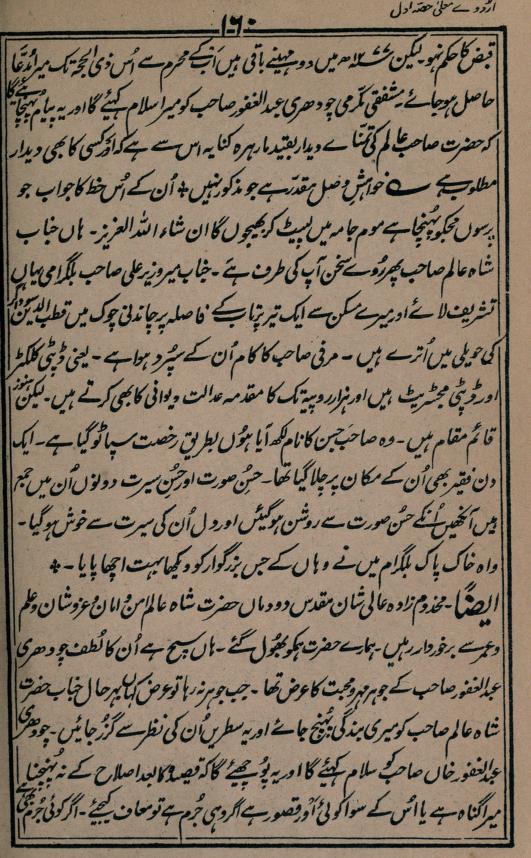 اردوے معلیٰ حصّہ اول
۱۶۰
قبض کا حکم نہو۔ لیکن ۱۲۷۷ھ میں دو مہینے باقی ہیں اب کے محرم سے اُس ذی الحجۃ تک میرا مدّعا
حاصل ہو جائے۔ مشفقی مکرمی چودھری عبدالغفور صاحب کو میرا سلام کہئیے گا اور یہ پیام پہنچائے گا
کہ حضرت صاحب عالم کی تمنّاے دیدار بقید مارہرہ کنایہ اس سے ہے کہ اور کسی کا بھی دیدار
مطلوب ہے ؎ خواہشِ وصل مقدّر ہے جو مذکور نہیں ❊ اُن کے اُس خط کا جواب جو
پرسوں مجکو پہنچا ہے موم جامہ میں لپیٹ کر بھیجوں گا ان شاء اللہ العزیز۔ ہاں جناب
شاہ عالم صاحب پھر روے سخن آپ کی طرف ہے۔ جناب میر وزیر علی صاحب بلگرامی یہاں
تشریف لائے اور میرے مسکن سے ایک تیر پرتاب کے فاصلہ پر چاندنی چوک میں قطب الدین سوداگر
کی حویلی میں اُترے ہیں۔ مرفی صاحب کا کام اُن کے سپرد ہوا ہے۔ یعنی ڈپٹی کلکٹر
اور ڈپٹی مجسٹریٹ ہیں اور ہزار روپیہ تک کا مقدمہ عدالت دیوانی کا بھی کرتے ہیں۔ لیکن ہنوز
قائم مقام ہیں۔ وہ صاحب جن کا نام لکھ آیا ہوں بطریق رخصت سپاٹو گیا ہے۔ ایک
دن فقیر بھی اُن کے مکان پر چلا گیا تھا۔ حسن صورت اور حسن سیرت دونوں اُن میں جمع
ہیں آنکھیں اُنکے حسن صورت سے روشن ہوگئیں اور دل اُن کی سیرت سے خوش ہوگیا۔
واہ خاک پاک بلگرام میں نے وہاں کے جس بزرگوار کو دیکھا بہت اچھا پایا۔ ❊
ایضاً۔ مخدوم زادہ عالی شان مقدس دودماں حضرت شاہ عالم امن و امان و عز و شان و علم
و عمر سے برخوردار رہیں۔ ہمارے حضرت ہمکو بھول گئے۔ ہاں سچ ہے اُن کا لطف چودھری
عبدالغفور صاحب کے جوہر مہر و محبت کا عرض تھا۔ جب جوہر نہ رہا تو عرض کہاں بہرحال جناب حضرت
شاہ عالم صاحب کو میری بندگی پہنچ جائے اور یہ سطریں اُن کی نظر سے گزر جائیں۔ چودھری
عبدالغفور خاں صاحب کو سلام کہئے گا اور یہ پوچھئے گا کہ قصیدہ کا بعد اصلاح کے نہ پہنچنا
میرا گناہ ہے یا اس کے سوا کوئی اور قصور ہے اگر وہی جرم ہے تو معاف کیجیے۔ اگر کوئی جرم